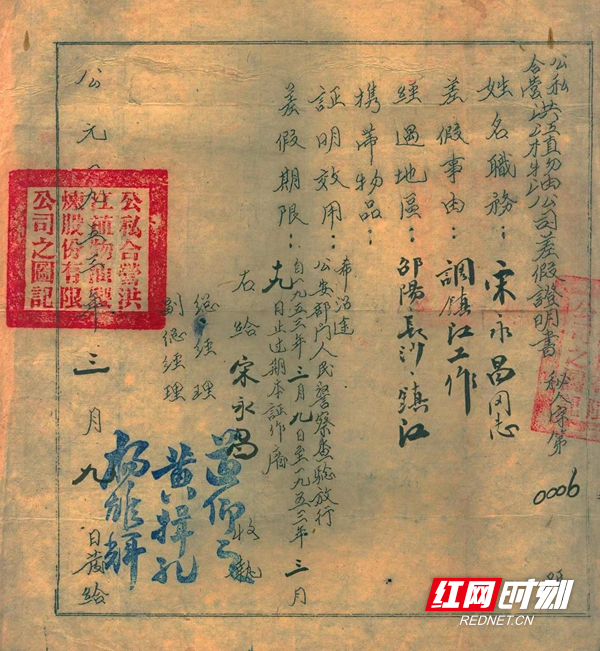 公私合营洪江植物油公司差假證明書 秘人字第0006號
姓名職務：宋永昌同志
差假事由：調鎮江工作
經過地區：邵陽、長沙、鎮江
携帶物品：
証明效用：希沿途公安部門人民警察查驗放行
差假期限：自一九五三年三月九日至一九五三年三月
九日止过期本証作廢
右給宋永昌收執
總經理
副總經理
黄揖孔
楊能輝
公元一九五三年三月九日發給
公私合營洪
江植物油製
煉股份有限
公司之圖記
红网时刻
REDNET.CN